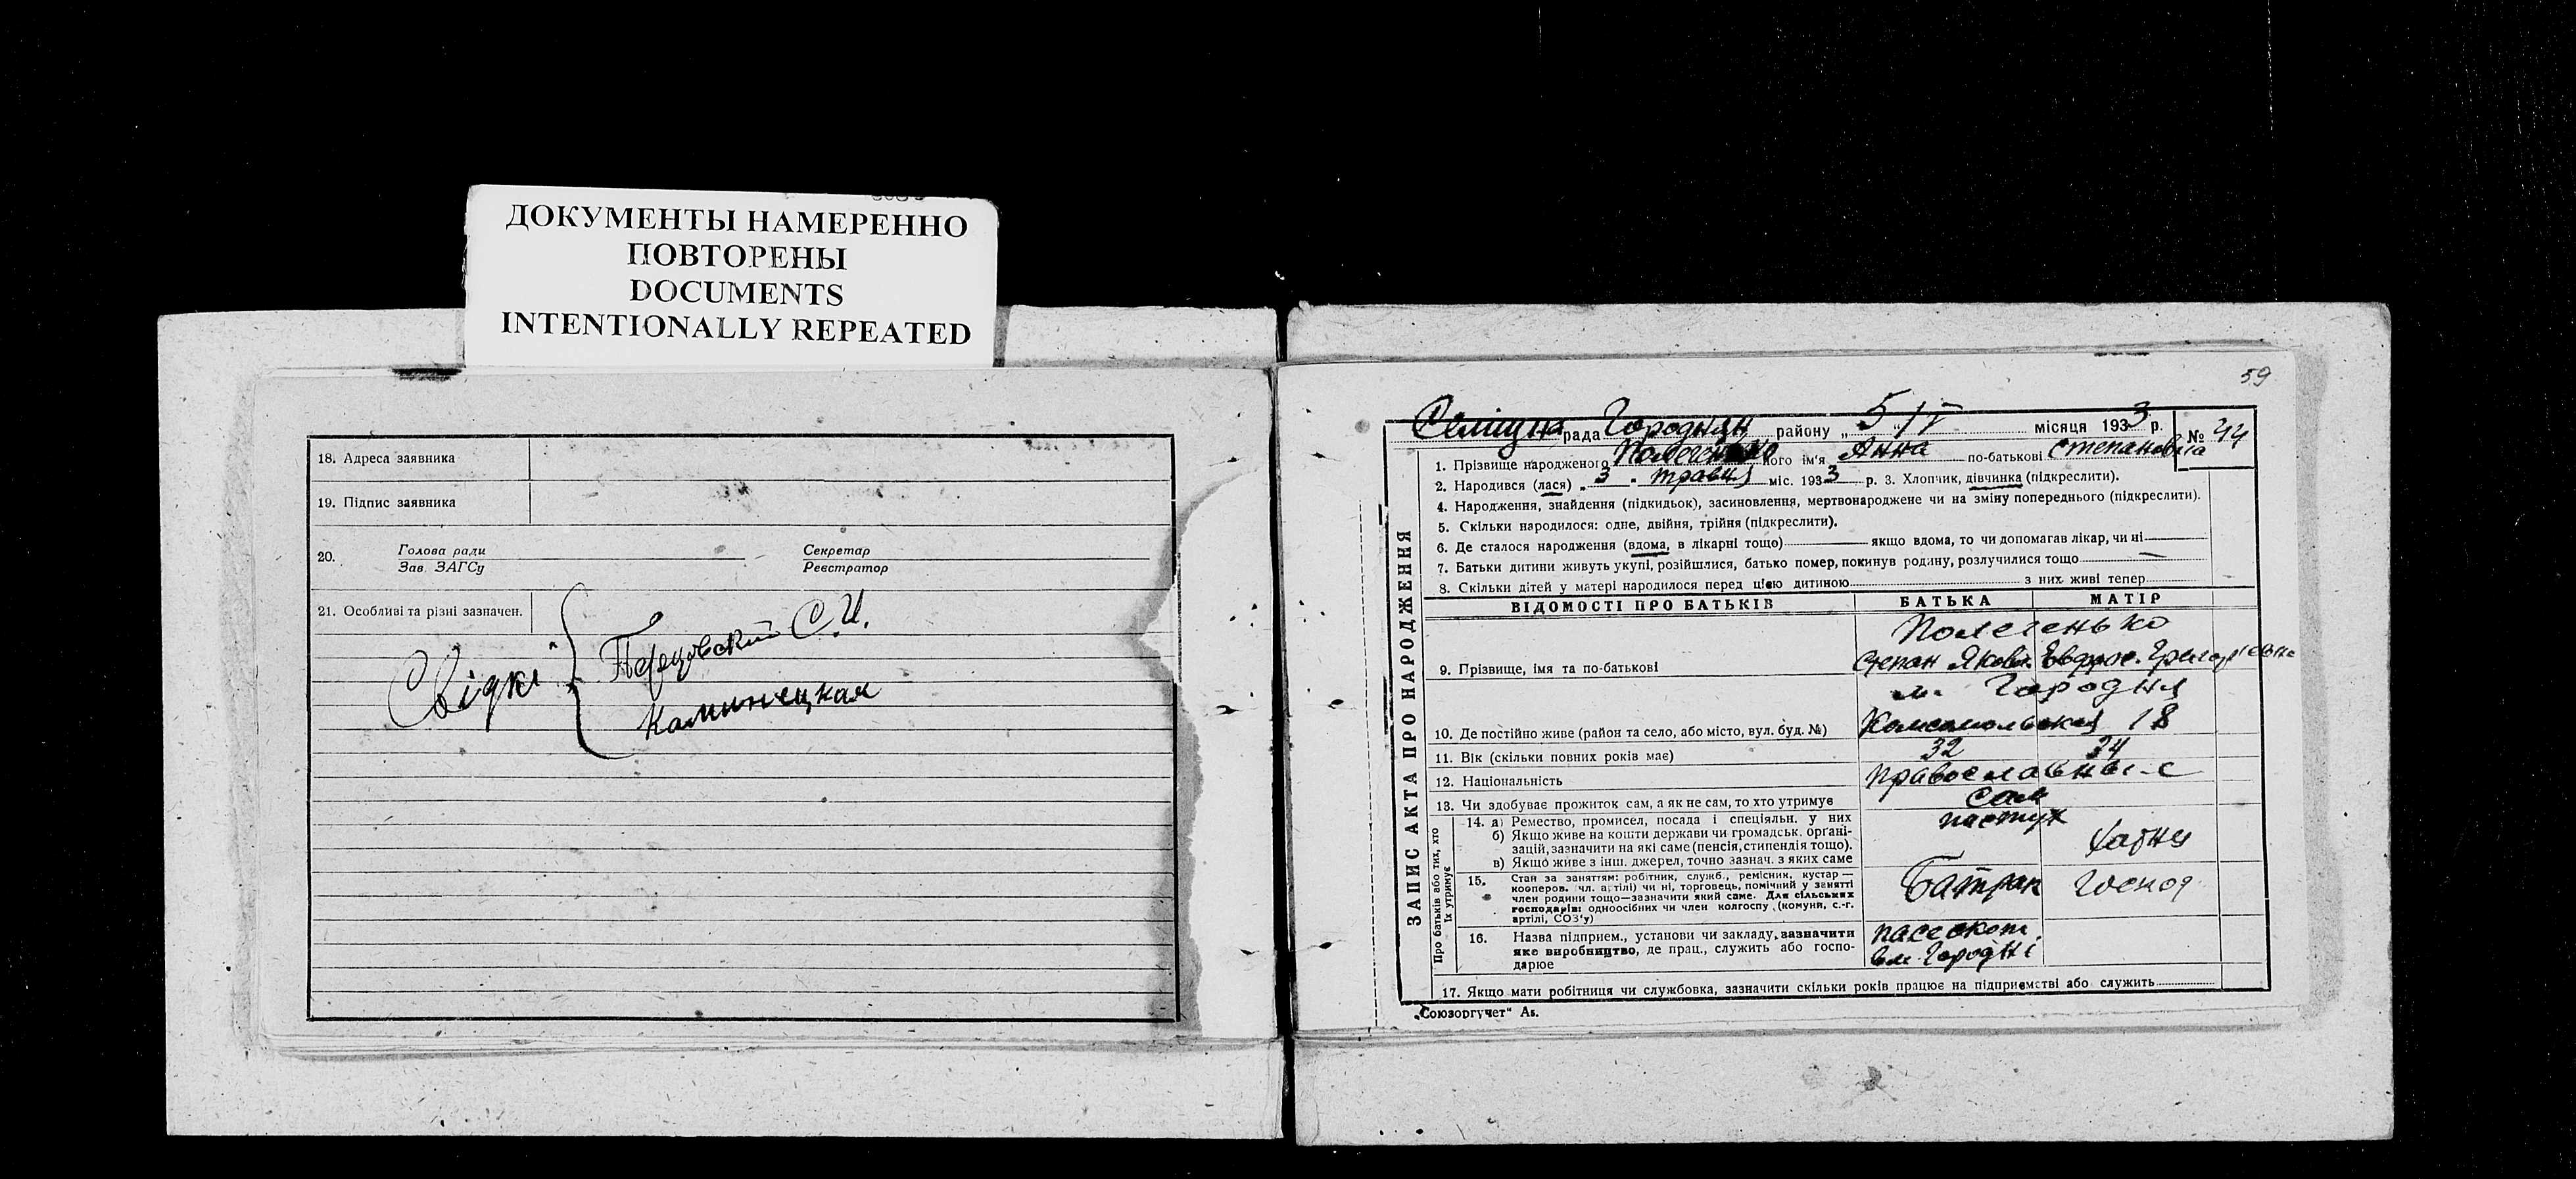 ДОКУМЕНТЫ НАМЕРЕННО
ПОВТОРЕНЫ
DOCUMENTS
INTENTIONALLY REPEATED
18. Адреса заявника
19. Підпис заявника
20. Голова ради Секретар
Зав. ЗАГСу Реєстратор
21. Особливі та різні зазначен.
Свідкі С.И.
Каминецкая
59
рада Городнян району „ 5 / V місяця 1933 р. № 44
1. Прізвище народженого його ім'я Анна по-батькові Степановна
2. Народився (лася) „ 3 " травня міс. 1933 р. 3. Хлопчик, дівчинка (підкреслити).
4. Народження, знайдення (підкидьок), засиновлення, мертвонароджене чи на зміну попереднього (підкреслити).
5. Скільки народилося: одне, двійня, трійня (підкреслити).
6. Де сталося народження (вдома, в лікарні тощо) якщо вдома, то чи допомагав лікар, чи ні
7. Батьки дитини живуть укупі, розійшлися, батько помер, покинув родину, розлучилися тощо
8. Скільки дітей у матері народилося перед цією дитиною з них живі тепер
ЗАПИС АКТА ПРО НАРОДЖЕННЯ
ВІДОМОСТІ ПРО БАТЬКІВ БАТЬКА МАТІР
Полегенько
9. Прізвище, імя та по-батькові Степан Яковл. Евфрос. Григорьевна
м. Городня
10. Де постійно живе (район та село, або місто, вул. буд. №) Комсомольская 18
11. Вік (скільки повних років має) 32 34
12. Національність
13. Чи здобуває прожиток сам, а як не сам, то хто утримує сам
Про батьків або тих, хто їх утримує
14. а) Ремество, промисел, посада і спеціяльн. у них пастух
б) Якщо живе на кошти держави чи громадськ. органі-
зацій, зазначити на які саме (пенсія, стипендія тощо). хатня
в) Якщо живе з інш. джерел, точно зазнач. з яких саме
15. Стан за заняттям: робітник, служб., ремісник, кустар — Батрак господ
кооперов. (чл. артілі) чи ні, торговець, помічний у занятті
член родини тощо—зазначити який саме. Для сільських
господарів: одноосібних чи член колгоспу, (комуни, с.-г.
артілі, СОЗ'у)
16. Назва підприєм., установи чи закладу, зазначити пасе скот
яке виробництво, де прац., служить або госпо- в м. Городні
дарює
17. Якщо мати робітниця чи службовка, зазначити скільки років працює на підприємстві або служить
„Союзоргучет" А5.